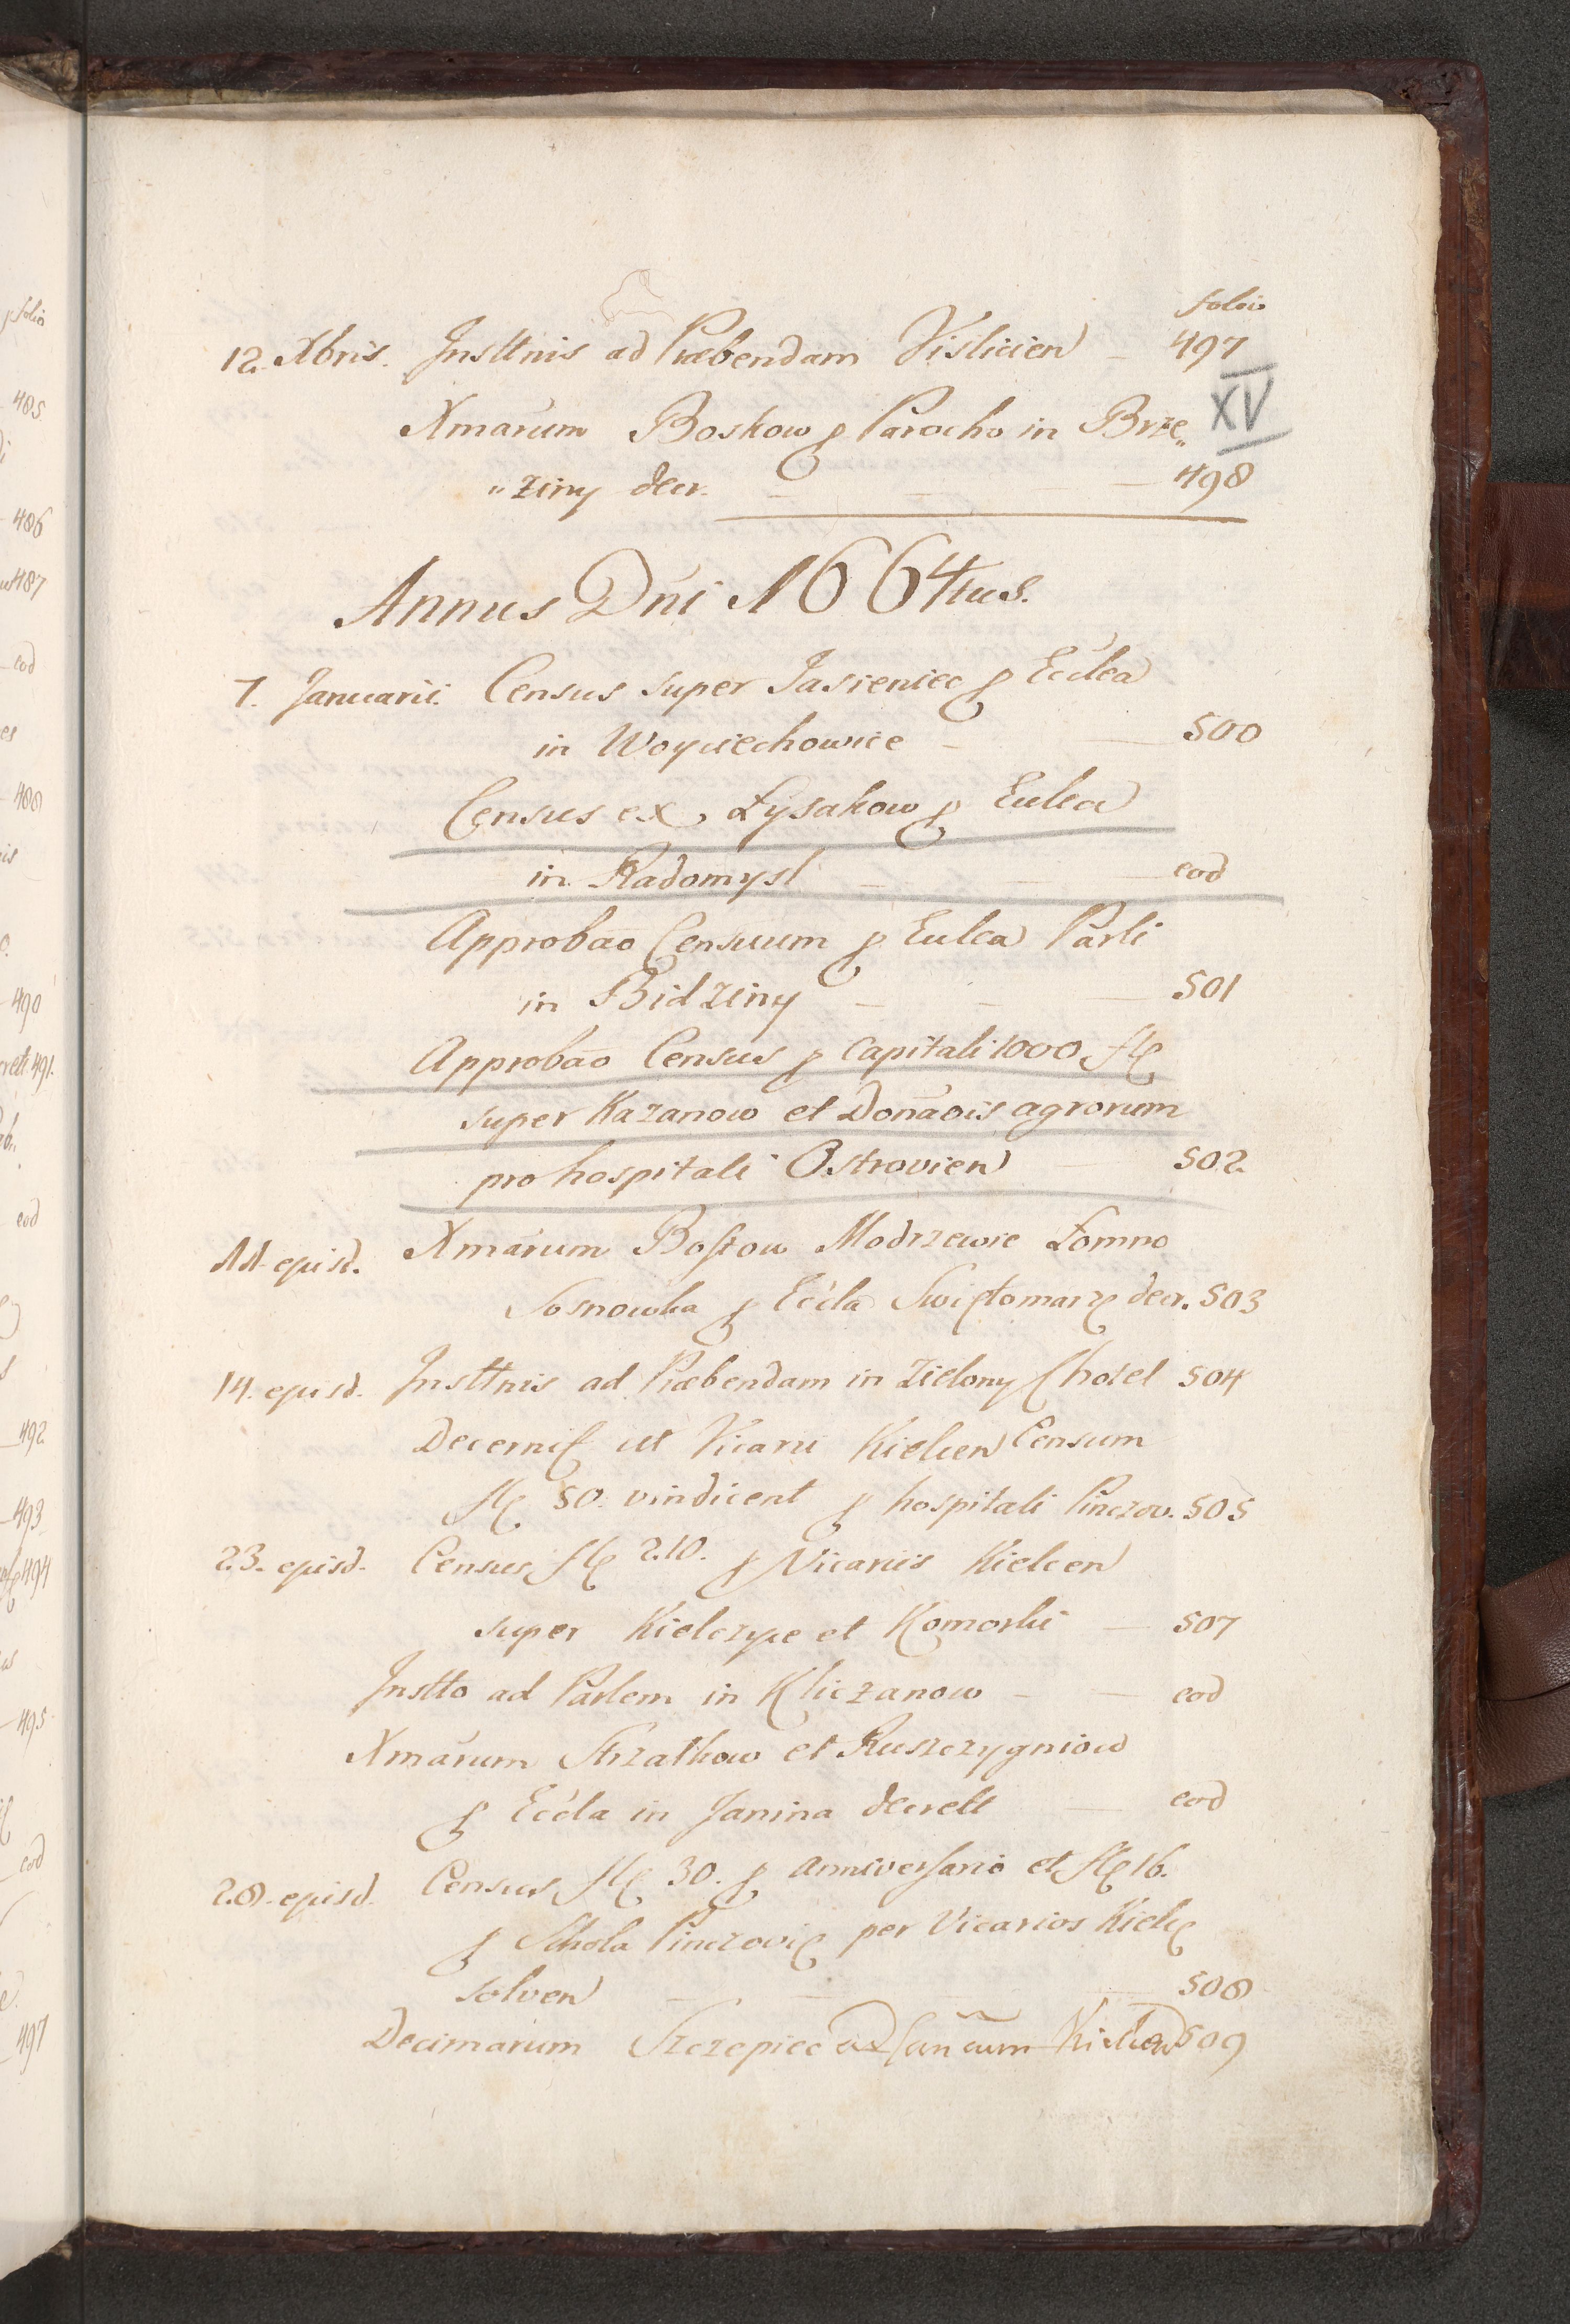 folio
12. Xbris. Insttnis ad Præbendam Vislicien 497
XV
Xmārum Boskow p Parocho in Brze„
„ziny decr. 498
Annus Dni 1664tus.
7. Januarii. Census super Jasieniec p Ecclea
in Woyciechowice 500
Census ex Łysakow p Ecclea
in Radomysl eod
Approbao Censuum p Ecclea Parli
in Bidziny 501
Approbāo Census p Capitali 1000 fl
super Kazanow et Donāois agrorum
pro hospitali Ostrovien 502
11. ejusd. Xmārum Bostow Modrzewie Łomno
Sosnowka p Eccla Swiętomarz decr. 503
14. ejusd. Insttnis ad Præbendam in Zielony Chotel 504
Decernit ut Vicarii Kielcen Censum
fl 50. vindicent p hospitali Pinczov. 505
23. ejusd. Census fl 210. p Vicariis Kielcen
super Kielczyce et Komorki 507
Instto ad Parlem in Kliczanow eod
Xmārum Strzalkow et Ruszczygniow
p Eccla in Janina decrett eod
28. ejusd. Census fl 30. p anniversario et fl 16.
p Schola Pinczovię per Vicarios Kielc
solven 508
Decimarum Szczepiec ad Kielcen 509